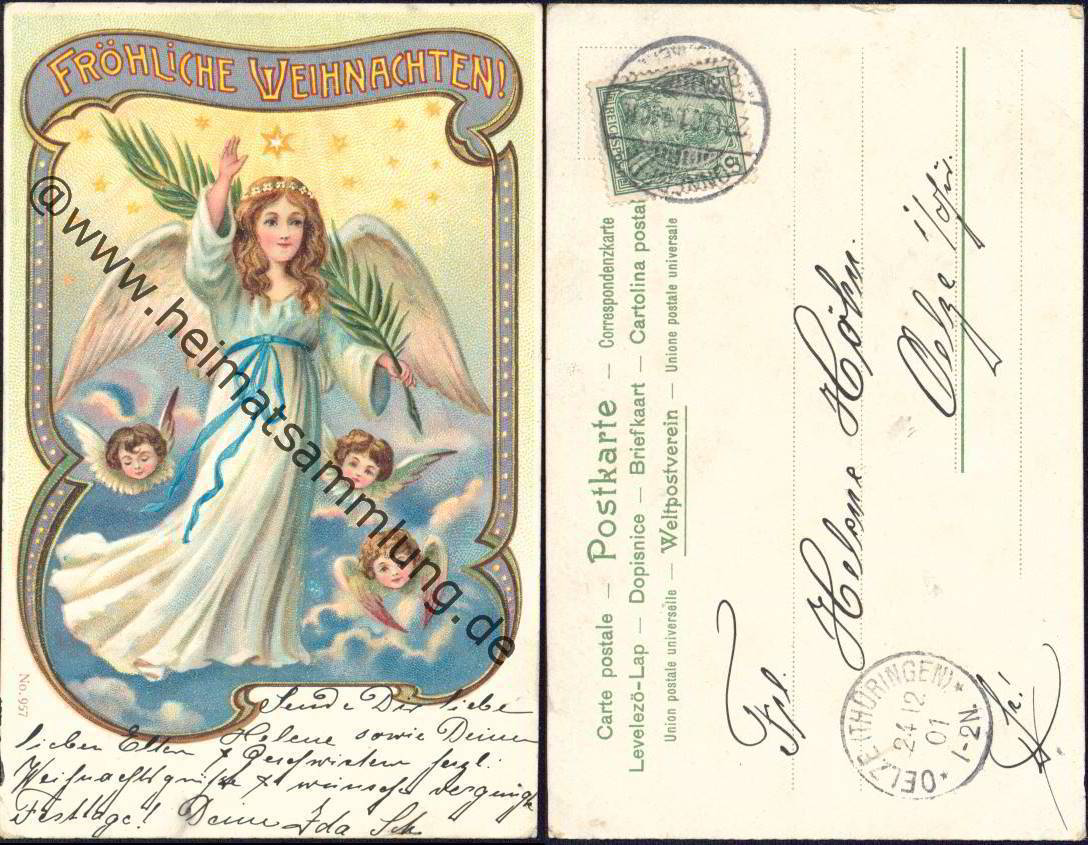 FRÖHLICHE WEIHNACHTEN!
@www.heimatsammlung.de
No. 957
Sende Dir liebe
lieben Eltern Helene sowie Deinen
& Geschwistern herzl.
Weihnachtsgrüße & wünsche vergnügte
Festtage! Deine Ida Sch
REICHSPOST
Carte postale – Postkarte – Correspondenzkarte
Levelezö-Lap – Dopisnice – Briefkaart – Cartolina postal
Union postale universelle – Weltpostverein – Unione postale universale
Frl.
Helene Höhn.
Oelze i/Thür.
OELZE (THÜRINGEN)
24 12
01
1-2N.